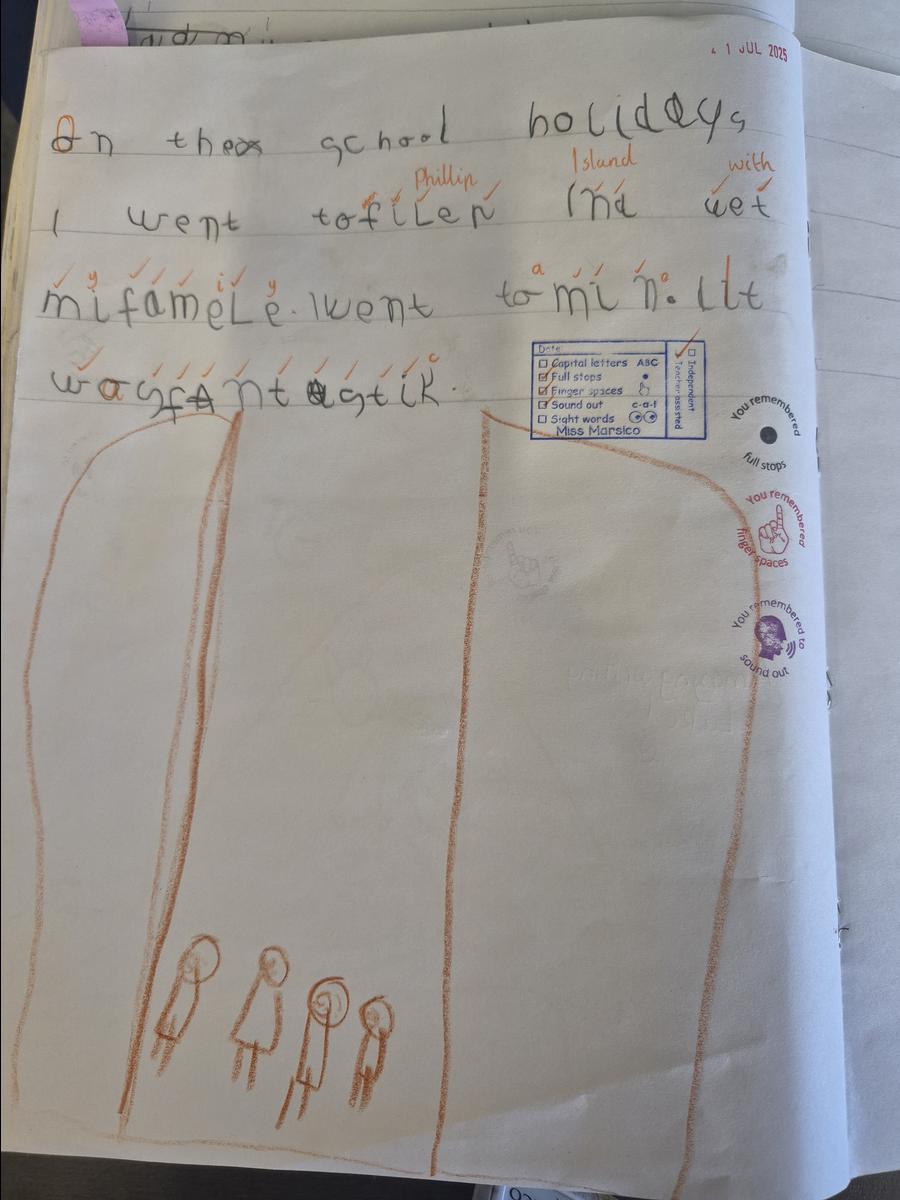 1 JUL 2025
On the school holidays
Phillip Island with
I went to fiLen Ind wet
y i y a a
mi fameLe. I went to min. Ilt
c
was fantastik.
Date:
Capital letters ABC
Full stops
Finger spaces
Sound out c-a-t
Sight words
Miss Marsico
Independent
Teacher assisted
You remembered full stops
You remembered finger spaces
You remembered to sound out